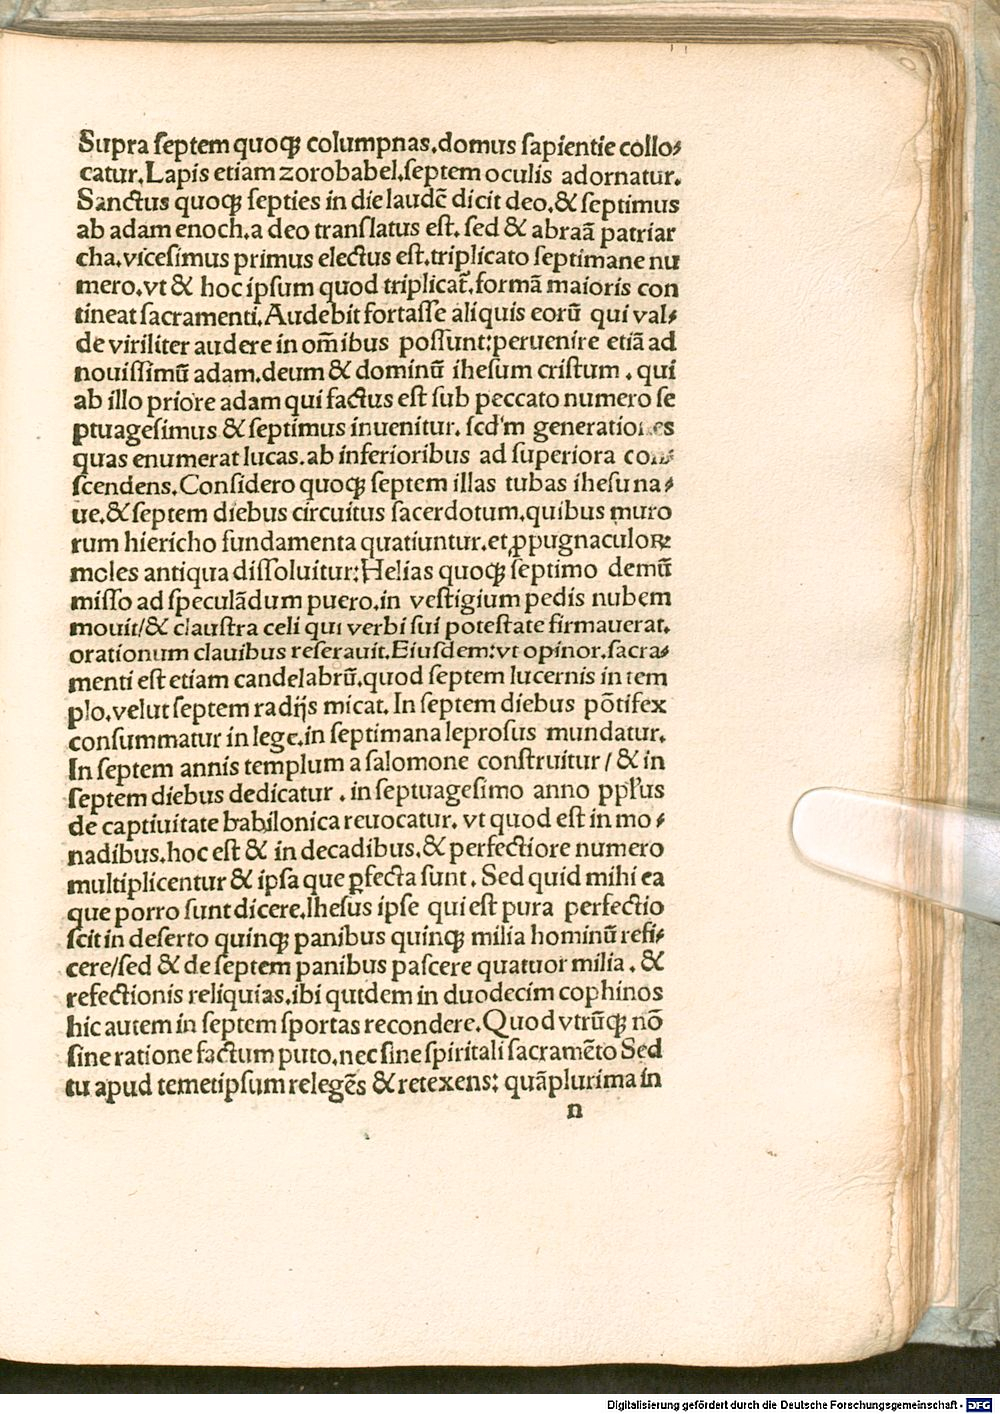 Supra septem quoqꝫ columpnas.domus sapientie collo⸗
catur.Lapis etiam zorobabel.septem oculis adornatur.
Sanctus quoqꝫ septies in die laudē dicit deo.& septimus
ab adam enoch.a deo translatus est. sed & abraā patriar
cha.vicesimus primus electus est.triplicato septimane nu
mero.vt & hoc ipsum quod triplicat᷑.formā maioris con
tineat sacramenti.Audebit fortasse aliquis eorū qui val⸗
de viriliter audere in om̄ibus possunt:peruenire etiā ad
nouissimū adam.deum & dominū ihesum cristum . qui
ab illo priore adam qui factus est sub peccato numero se
ptuagesimus & septimus inuenitur. scd'm generationes
quas enumerat lucas.ab inferioribus ad superiora con⸗
scendens.Considero quoqꝫ septem illas tubas ihesu na⸗
ue.& septem diebus circuitus sacerdotum.quibus muro
rum hiericho fundamenta quatiuntur.et ꝓpugnaculoꝝ
moles antiqua dissoluitur:Helias quoqꝫ septimo demū
misso ad speculādum puero.in vestigium pedis nubem
mouit/& claustra celi qui verbi sui potestate firmauerat.
orationum clauibus reserauit.Eiusdem:vt opinor.sacra⸗
menti est etiam candelabrū.quod septem lucernis in tem
plo.velut septem radijs micat. In septem diebus pōtifex
consummatur in lege.in septimana leprosus mundatur.
In septem annis templum a salomone construitur / & in
septem diebus dedicatur . in septuagesimo anno pp̄lus
de captiuitate babilonica reuocatur. vt quod est in mo⸗
nadibus.hoc est & in decadibus.& perfectiore numero
multiplicentur & ipsa que ꝑfecta sunt . Sed quid mihi ea
que porro sunt dicere.Ihesus ipse qui est pura perfectio
scit in deserto quinqꝫ panibus quinqꝫ milia hominū refi⸗
cere/sed & de septem panibus pascere quatuor milia . &
refectionis reliquias.ibi qutdem in duodecim cophinos
hic autem in septem sportas recondere.Quod vtrūqꝫ nō
sine ratione factum puto.nec sine spiritali sacramēto Sed
tu apud temetipsum relegēs & retexens: quāplurima in
n
Digitalisierung gefördert durch die Deutsche Forschungsgemeinschaft - DFG